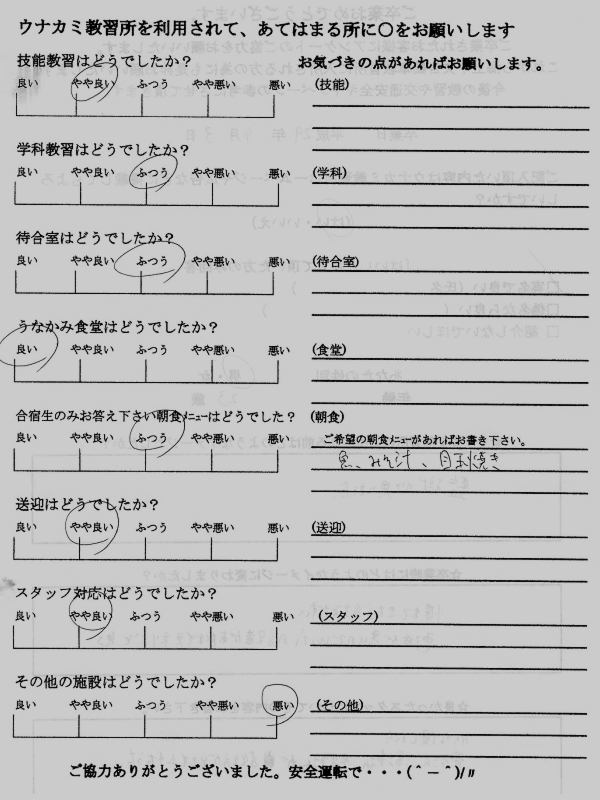 ウナカミ教習所を利用されて、あてはまる所に〇をお願いします
技能教習はどうでしたか？
お気づきの点があればお願いします。
良い やや良い ふつう やや悪い 悪い
(技能)
学科教習はどうでしたか？
良い やや良い ふつう やや悪い 悪い
(学科)
待合室はどうでしたか？
良い やや良い ふつう やや悪い 悪い
(待合室)
うなかみ食堂はどうでしたか？
良い やや良い ふつう やや悪い 悪い
(食堂)
合宿生のみお答え下さい朝食ﾒﾆｭｰはどうでしたか？
(朝食)
良い やや良い ふつう やや悪い 悪い
ご希望の朝食ﾒﾆｭｰがあればお書き下さい。
魚、みそ汁、目玉焼き
送迎はどうでしたか？
良い やや良い ふつう やや悪い 悪い
(送迎)
スタッフ対応はどうでしたか？
良い やや良い ふつう やや悪い 悪い
(スタッフ)
その他の施設はどうでしたか？
良い やや良い ふつう やや悪い 悪い
(その他)
ご協力ありがとうございました。安全運転で・・・(＾－＾)/〃